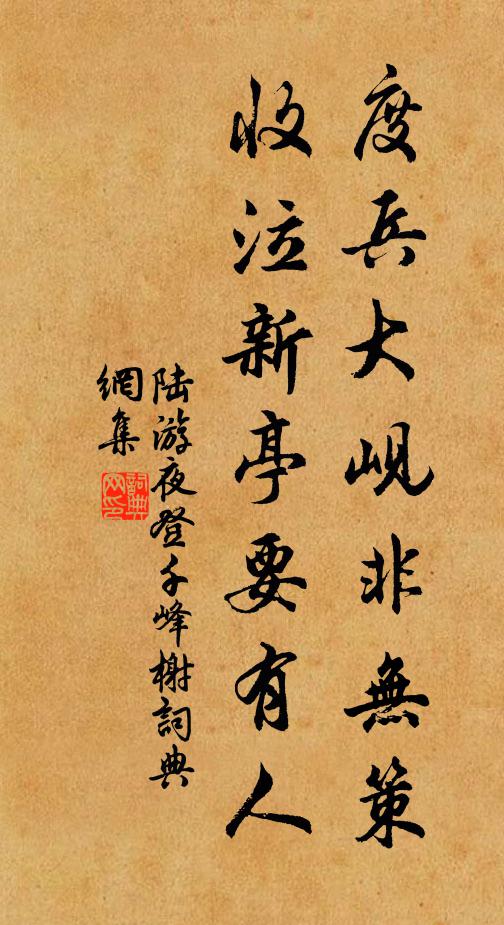 度兵大峴非無策
收泣新亭要有人
陆游夜登千峰榭詞典
網集
詞典網印